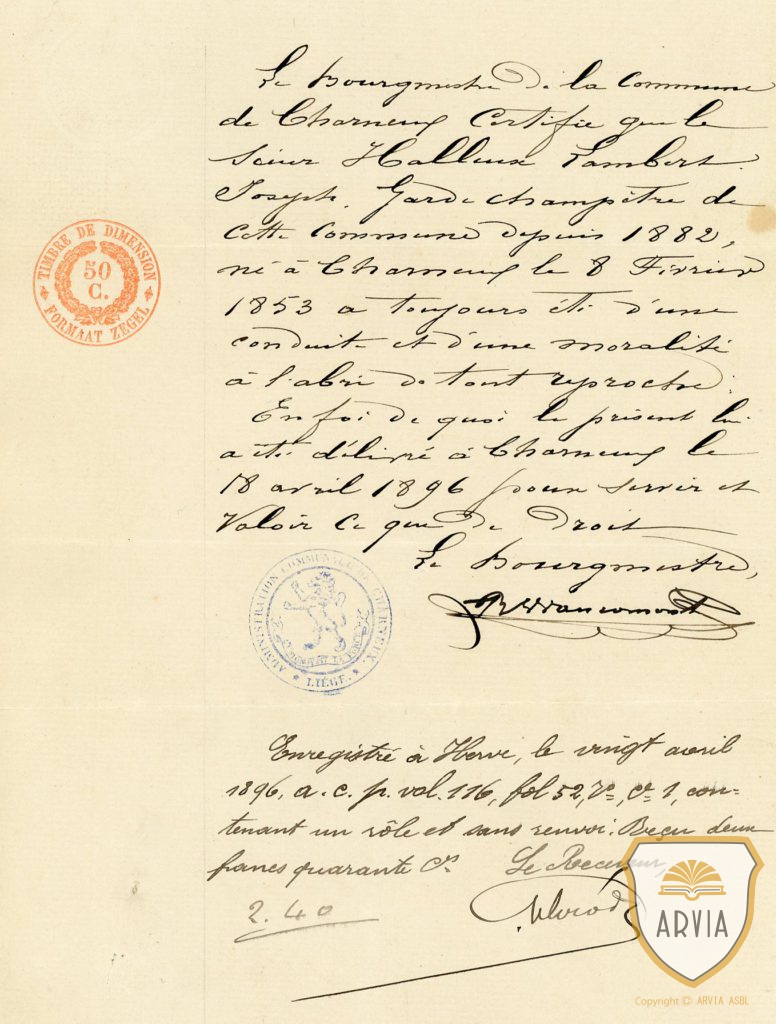 Le Bourgmestre de la Commune
de Charneux Certifie que le
Sieur Halleux Lambert
Joseph. Garde champêtre de
cette Commune depuis 1882,
né à Charneux le 8 Février
1853 a toujours été d'une
conduite et d'une moralité
à l'abri de tout reproche.
En foi de quoi le présent lui
a été délivré à Charneux le
18 avril 1896 pour servir et
Valoir ce que de Droit
Le Bourgmestre,
TIMBRE DE DIMENSION
50
C.
FORMAAT ZEGEL
ADMINISTRATION COMMUNALE DE CHARNEUX
L'UNION FAIT LA FORCE
LIÉGE.
Enregistré à Herve, le vingt avril
1896, a. c. p. vol. 116, fol 52, Vo, Ce 1, con=
tenant un rôle et sans renvoi. Reçu deux
francs quarante Cs Le Receveur,
2.40
ARVIA
Copyright © ARVIA ASBL